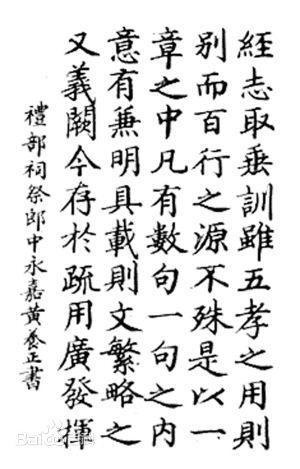 經志取垂訓雖五孝之用則
別而百行之源不殊是以一
章之中凡有數句一句之內
意有兼明具載則文繁略之
又義闕今存於疏用廣發揮
禮部祠祭郎中永嘉黃養正書
Baidu百科